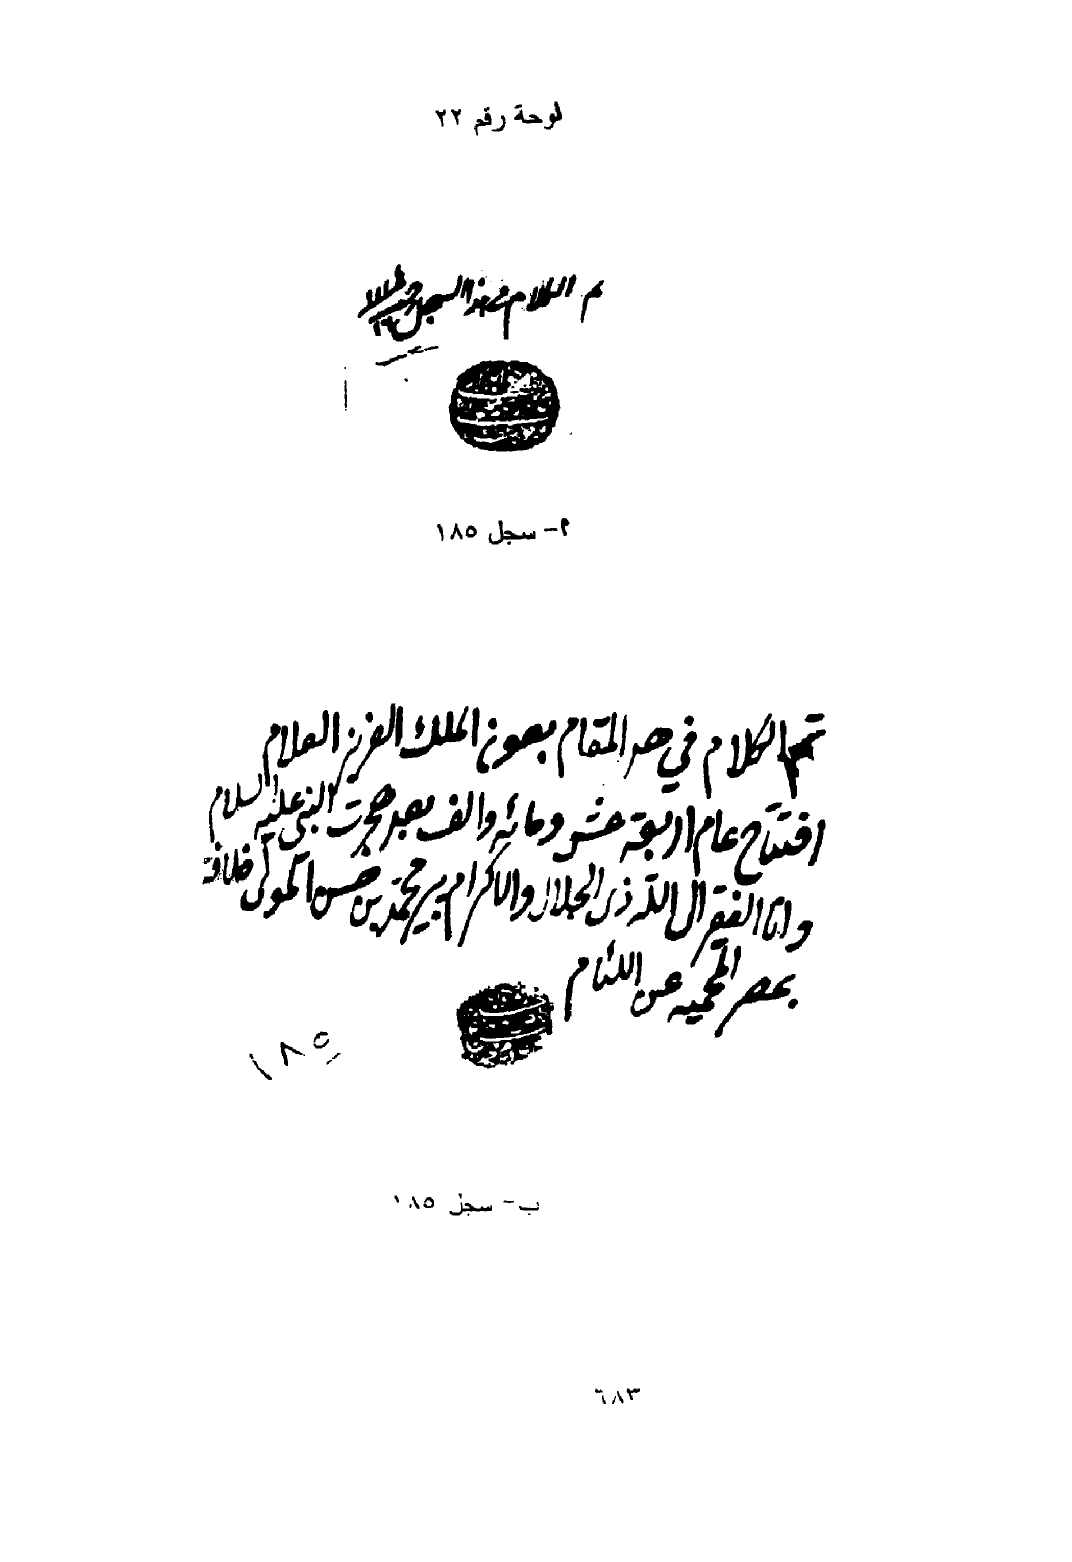 لوحة رقم ٢٢
تم الكلام في هذا السجل
أ- سجل ١٨٥
تم الكلام في هذ المقام بعون الملك العزيز العلام
افتتاح عام اربعة عشر ومائه والف بعد هجرت النبى عليه السلام
وانا الفقير الى الله ذى الجلال والاكرام پير محمد بن حسن المولى خلافة
بمصر المحميه عن اللئام
١٨٥
ب- سجل ١٨٥
٦٨٣